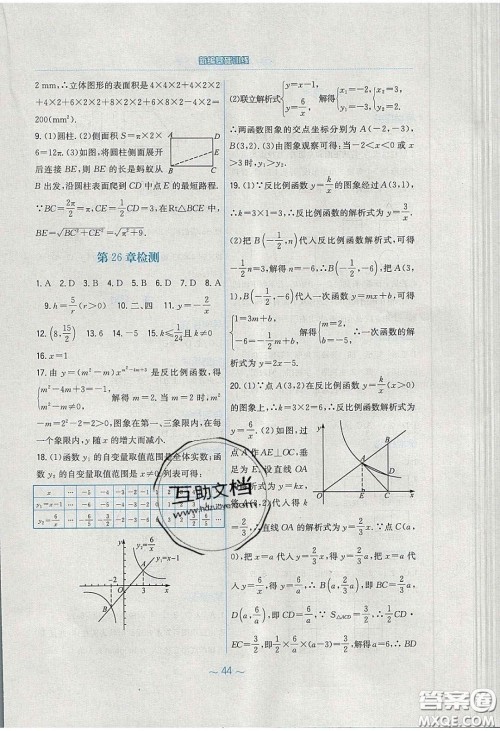 新编基础训练
2 mm,∴立体图形的表面积是4×4×2+4×2×2
+6×8×2+6×2×2+6×8×2-4×2×2=
200(mm²).
9. (1)圆柱. (2)侧面积 S=π×2×
6=12π. (3)如图,将圆柱侧面展开
后连接 BE,则 BE 的长是蚂蚁从
B 出发,沿圆柱表面爬到 CD 中点 E 的最短路程.
∵BC=2π/2=π,CE=1/2CD=3,在Rt△BCE 中,
BE=√(BC²+CE²)=√(π²+9).
A D
E
B C
第 26 章检测
1. A 2. D 3. A 4. B 5. D 6. D 7. D
8. A 9. h=5/r(r>0) 10. 二、四 11. y=-2/x
12. (8,15/2) 13. 6 14. -5 15. k≤1/24且 k≠0
16. x=1
17. 由 y=(m²-m)x^(m²-4m+2) 是反比例函数,得
{m²-4m+3=-1, m²-m≠0. 解得 m=2. 当 m=2 时,
-m=2. 图象在第一、三象限内,在
每个象限内,y 随 x 的增大而减小.
18. (1)函数 y₁ 的自变量取值范围是全体实数;函
数 y₂ 的自变量取值范围是 x≠0. 列表可得:
x … -5 -4 -3 -2 -1
y₁=x-1
y₂=6/x
y
y₂=6/x
y₁=x-1
A
-2
O 3 x
B
(2)联立解析式{y=x-1, y=6/x, 解得{x₁=-2, y₁=-3, {x₂=3, y₂=2,
∴两函数图象的交点坐标分别为 A(-2,-3),
B(3,2). (3)由图象观察可得:当-2<x<0 或 x>3
时,y₁>y₂.
19. (1)∵反比例函数 y=k/x的图象经过 A(3,1),
∴k=3×1=3,∴反比例函数的解析式为 y=3/x.
(2)把 B(-1/2,n)代入反比例函数解析式,可得
-1/2n=3,解得 n=-6,∴B(-1/2,-6). 把 A(3,
1),B(-1/2,-6)代入一次函数 y=mx+b,可得
{1=3m+b, -6=-1/2m+b, 解得{m=2, b=-5, ∴一次函数的解
析式为 y=2x-5.
20. (1)∵点 A(3,2)在反比例函数 y=k/x(x>0)
的图象上,∴k=3×2=6,∴反比例函数
y=6/x. (2)如图,过
点 A 作 AE⊥OC,垂
足为 E,设直线
OA 的解析式为
y
O E C x
A
D
B
∴直线 OA 的解析式为 y=2/3x. ∵点 C(a,
0),把 x=a 代入 y=2/3x,得 y=2/3a,把 x=a 代入
y=6/x,得 y=6/a,∴B(a,2/3a),即 BC=2/3a,
D(a,6/a),即 CD=6/a. ∵S△ACD=3/2,∴1/2CD·
EC=3/2,即1/2×6/a×(a-3)=3/2,解得 a=6,∴BD
~ 44 ~
互助文档
www.hdzuowen.com
答案圈
MXQE.COM